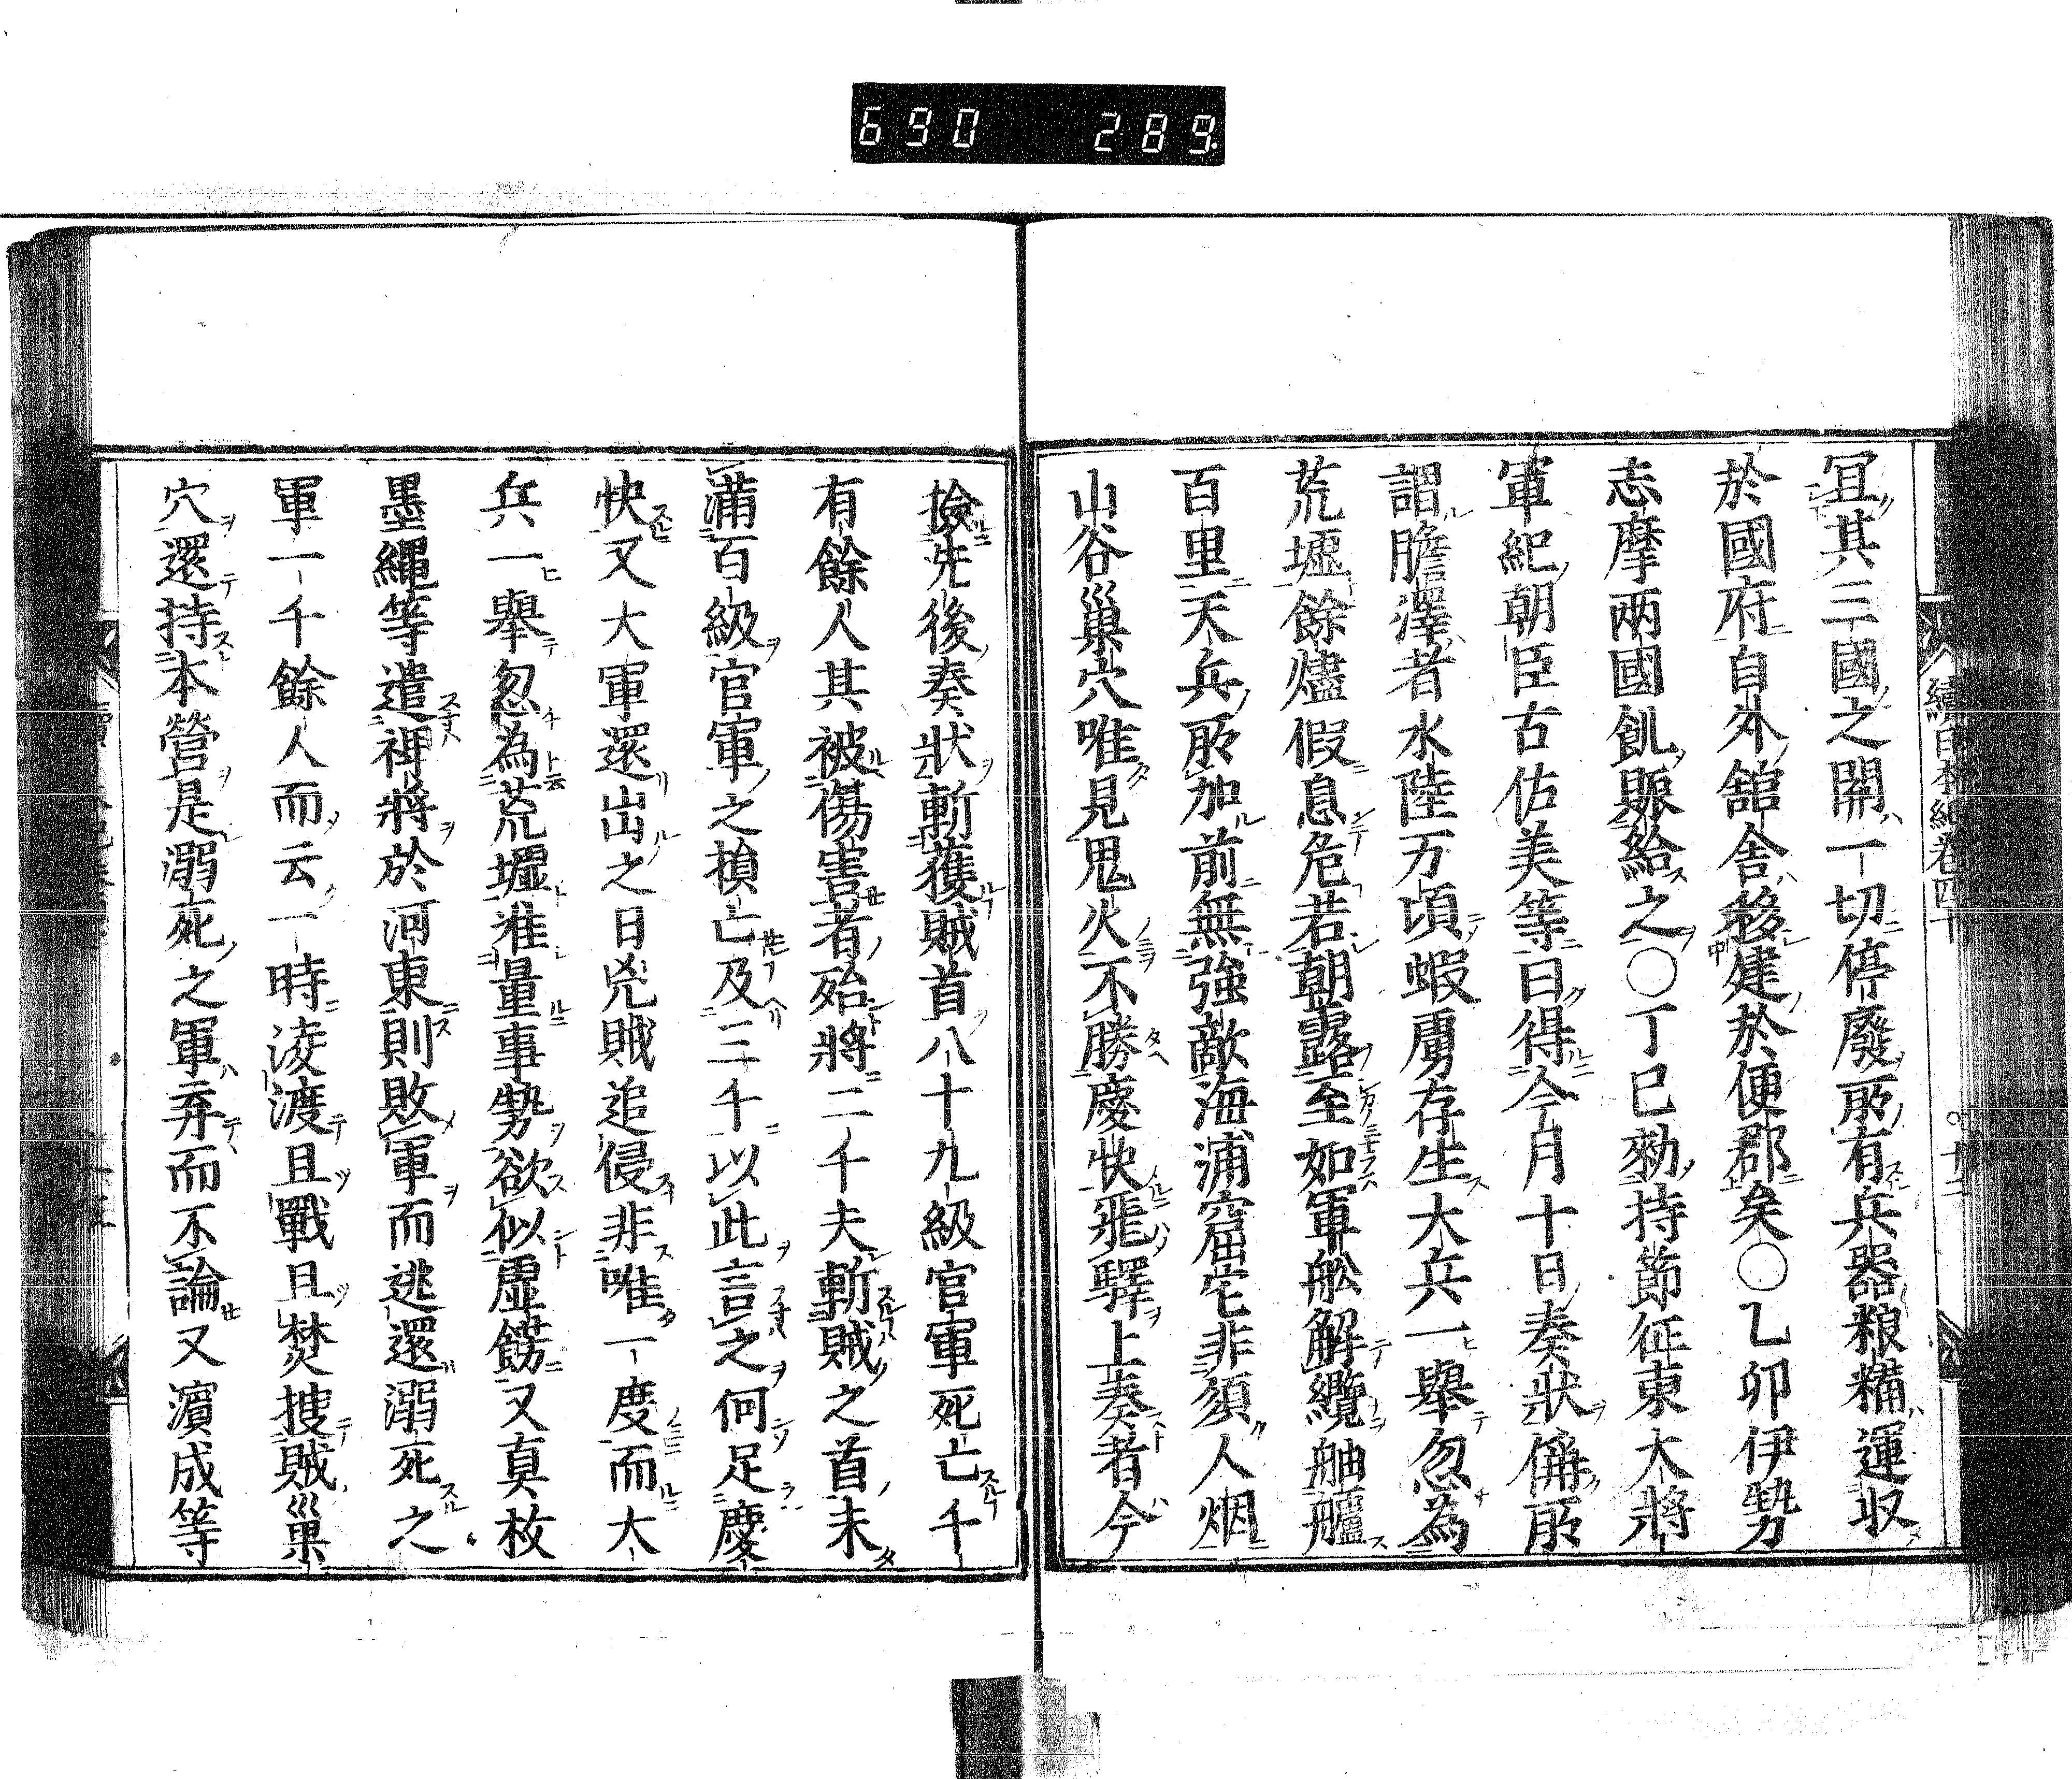 690 289
冝其三國之関一切停廢所有兵器粮糒運収
於國府自外舘舎移建於便郡矣○乙卯伊勢
志摩兩國飢賑給之○丁巳勅持節征東大將
軍紀朝臣古佐美等曰得今月十日奏狀偁所
謂膽澤者水陸万頃蝦虜存生大兵一擧忽為
荒墟餘燼假息危若朝露至如軍舩解纜舳艫
百里天兵所加前無強敵海浦窟宅非須人烟
山谷巢穴唯見鬼火不勝慶快飛驛上奏者今
續日本紀卷四十
撿先後奏狀斬獲賊首八十九級官軍死亡千
有餘人其被傷害者殆將二千夫斬賊之首未
滿百級官軍之損亡及三千以此言之何足慶
快又大軍還出之日兇賊追侵非唯一度而大
兵一擧忽為荒墟准量事勢欲似虛餝又真枚
墨繩等遣裨將於河東則敗軍而逃還溺死之
軍一千餘人而云一時凌渡且戰且焚搜賊巢
穴還持本營是溺死之軍弃而不論又濱成等